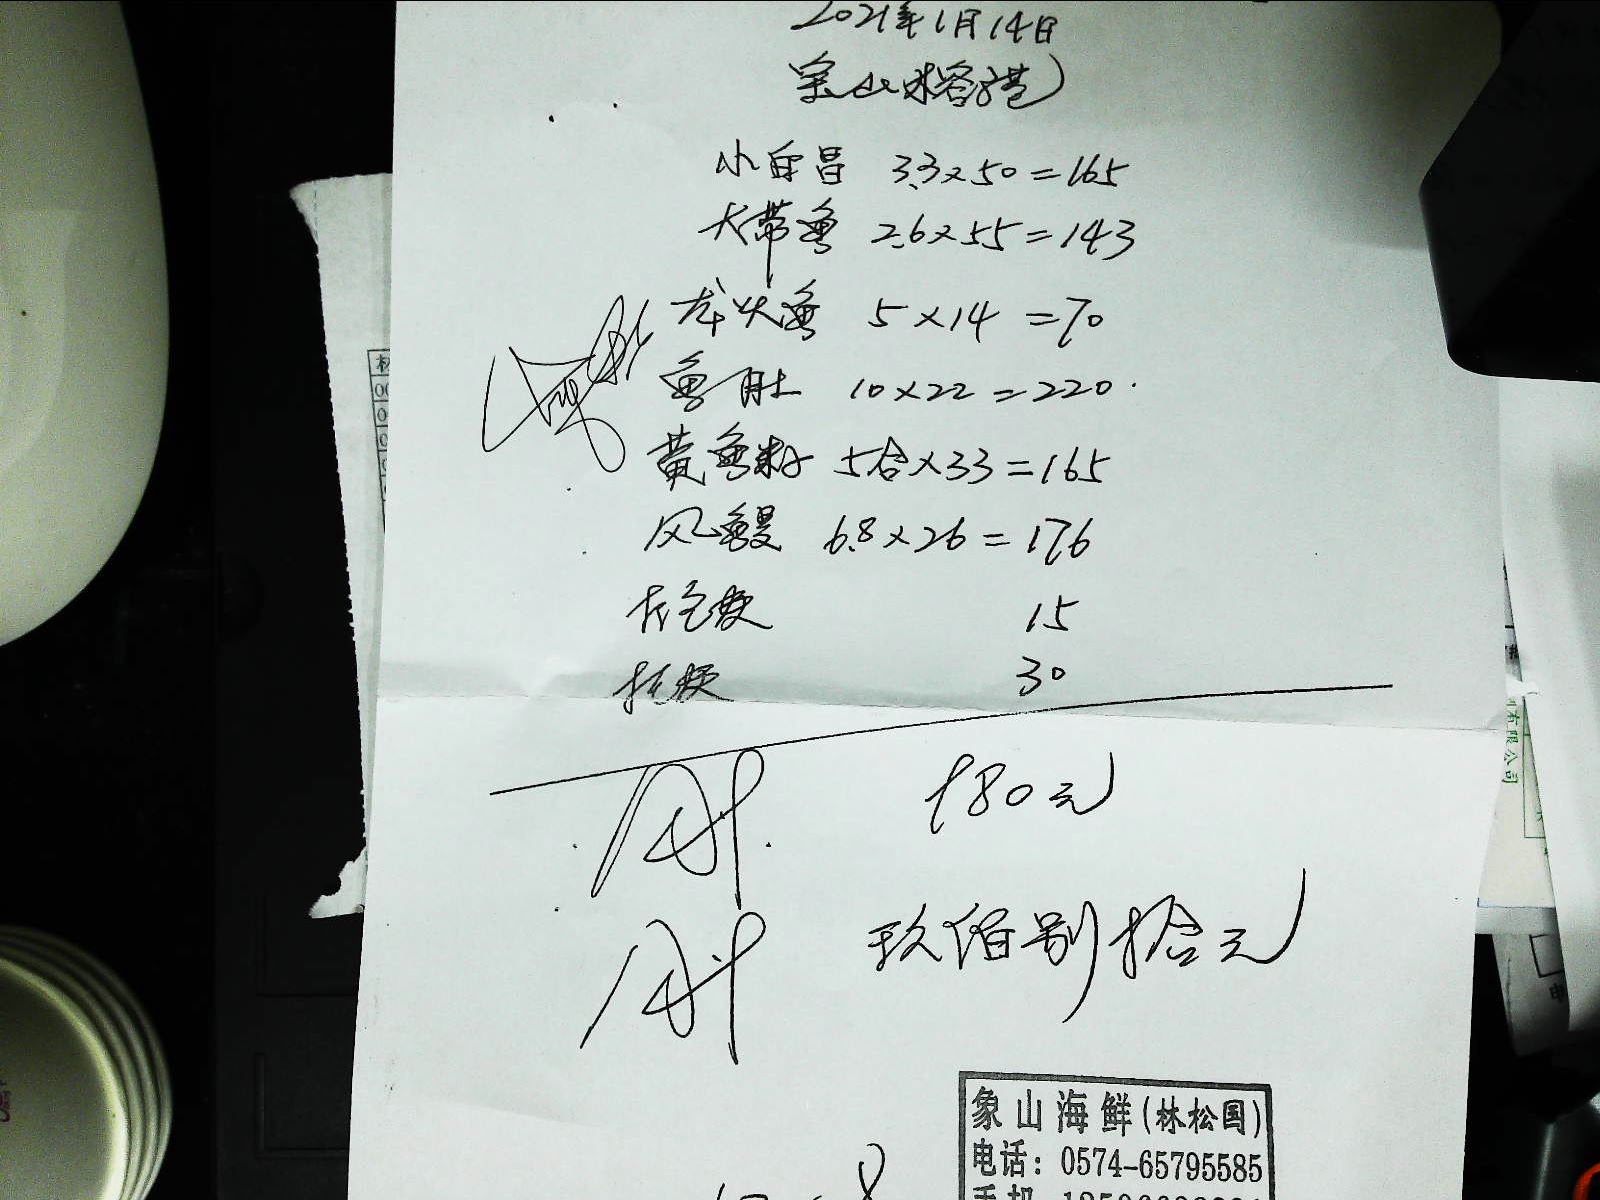 2021年1月14日
小白昌 3.3×50=165
大带鱼 2.6×55=143
龙头鱼 5×14 =70
鱼肚 10×22=220
黄鱼籽 5合×33=165
风鳗 6.8×26=176
15
30
980元
玖佰捌拾元
象山海鲜(林松国)
电话: 0574-65795585
手机
有限公司